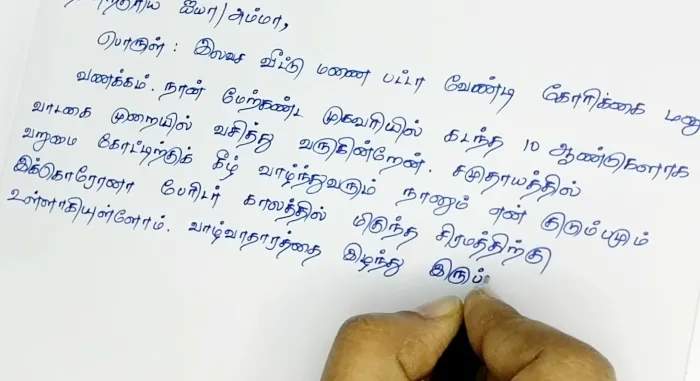 ஐயா/அம்மா,
பொருள் : இலவச வீட்டு மணை பட்டா வேண்டி கோரிக்கை மனு
வணக்கம். நான் மேற்கண்ட முகவரியில் கடந்த 10 ஆண்டுகளாக
வாடகை முறையில் வசித்து வருகின்றேன். சமுதாயத்தில்
வறுமை கோட்டிற்குக் கீழ் வாழ்ந்துவரும் நானும் என் குடும்பமும்
இக்கொரோனா பேரிடர் காலத்தில் மிகுந்த சிரமத்திற்கு
உள்ளாகியுள்ளோம். வாழ்வாதாரத்தை இழந்து இருப்